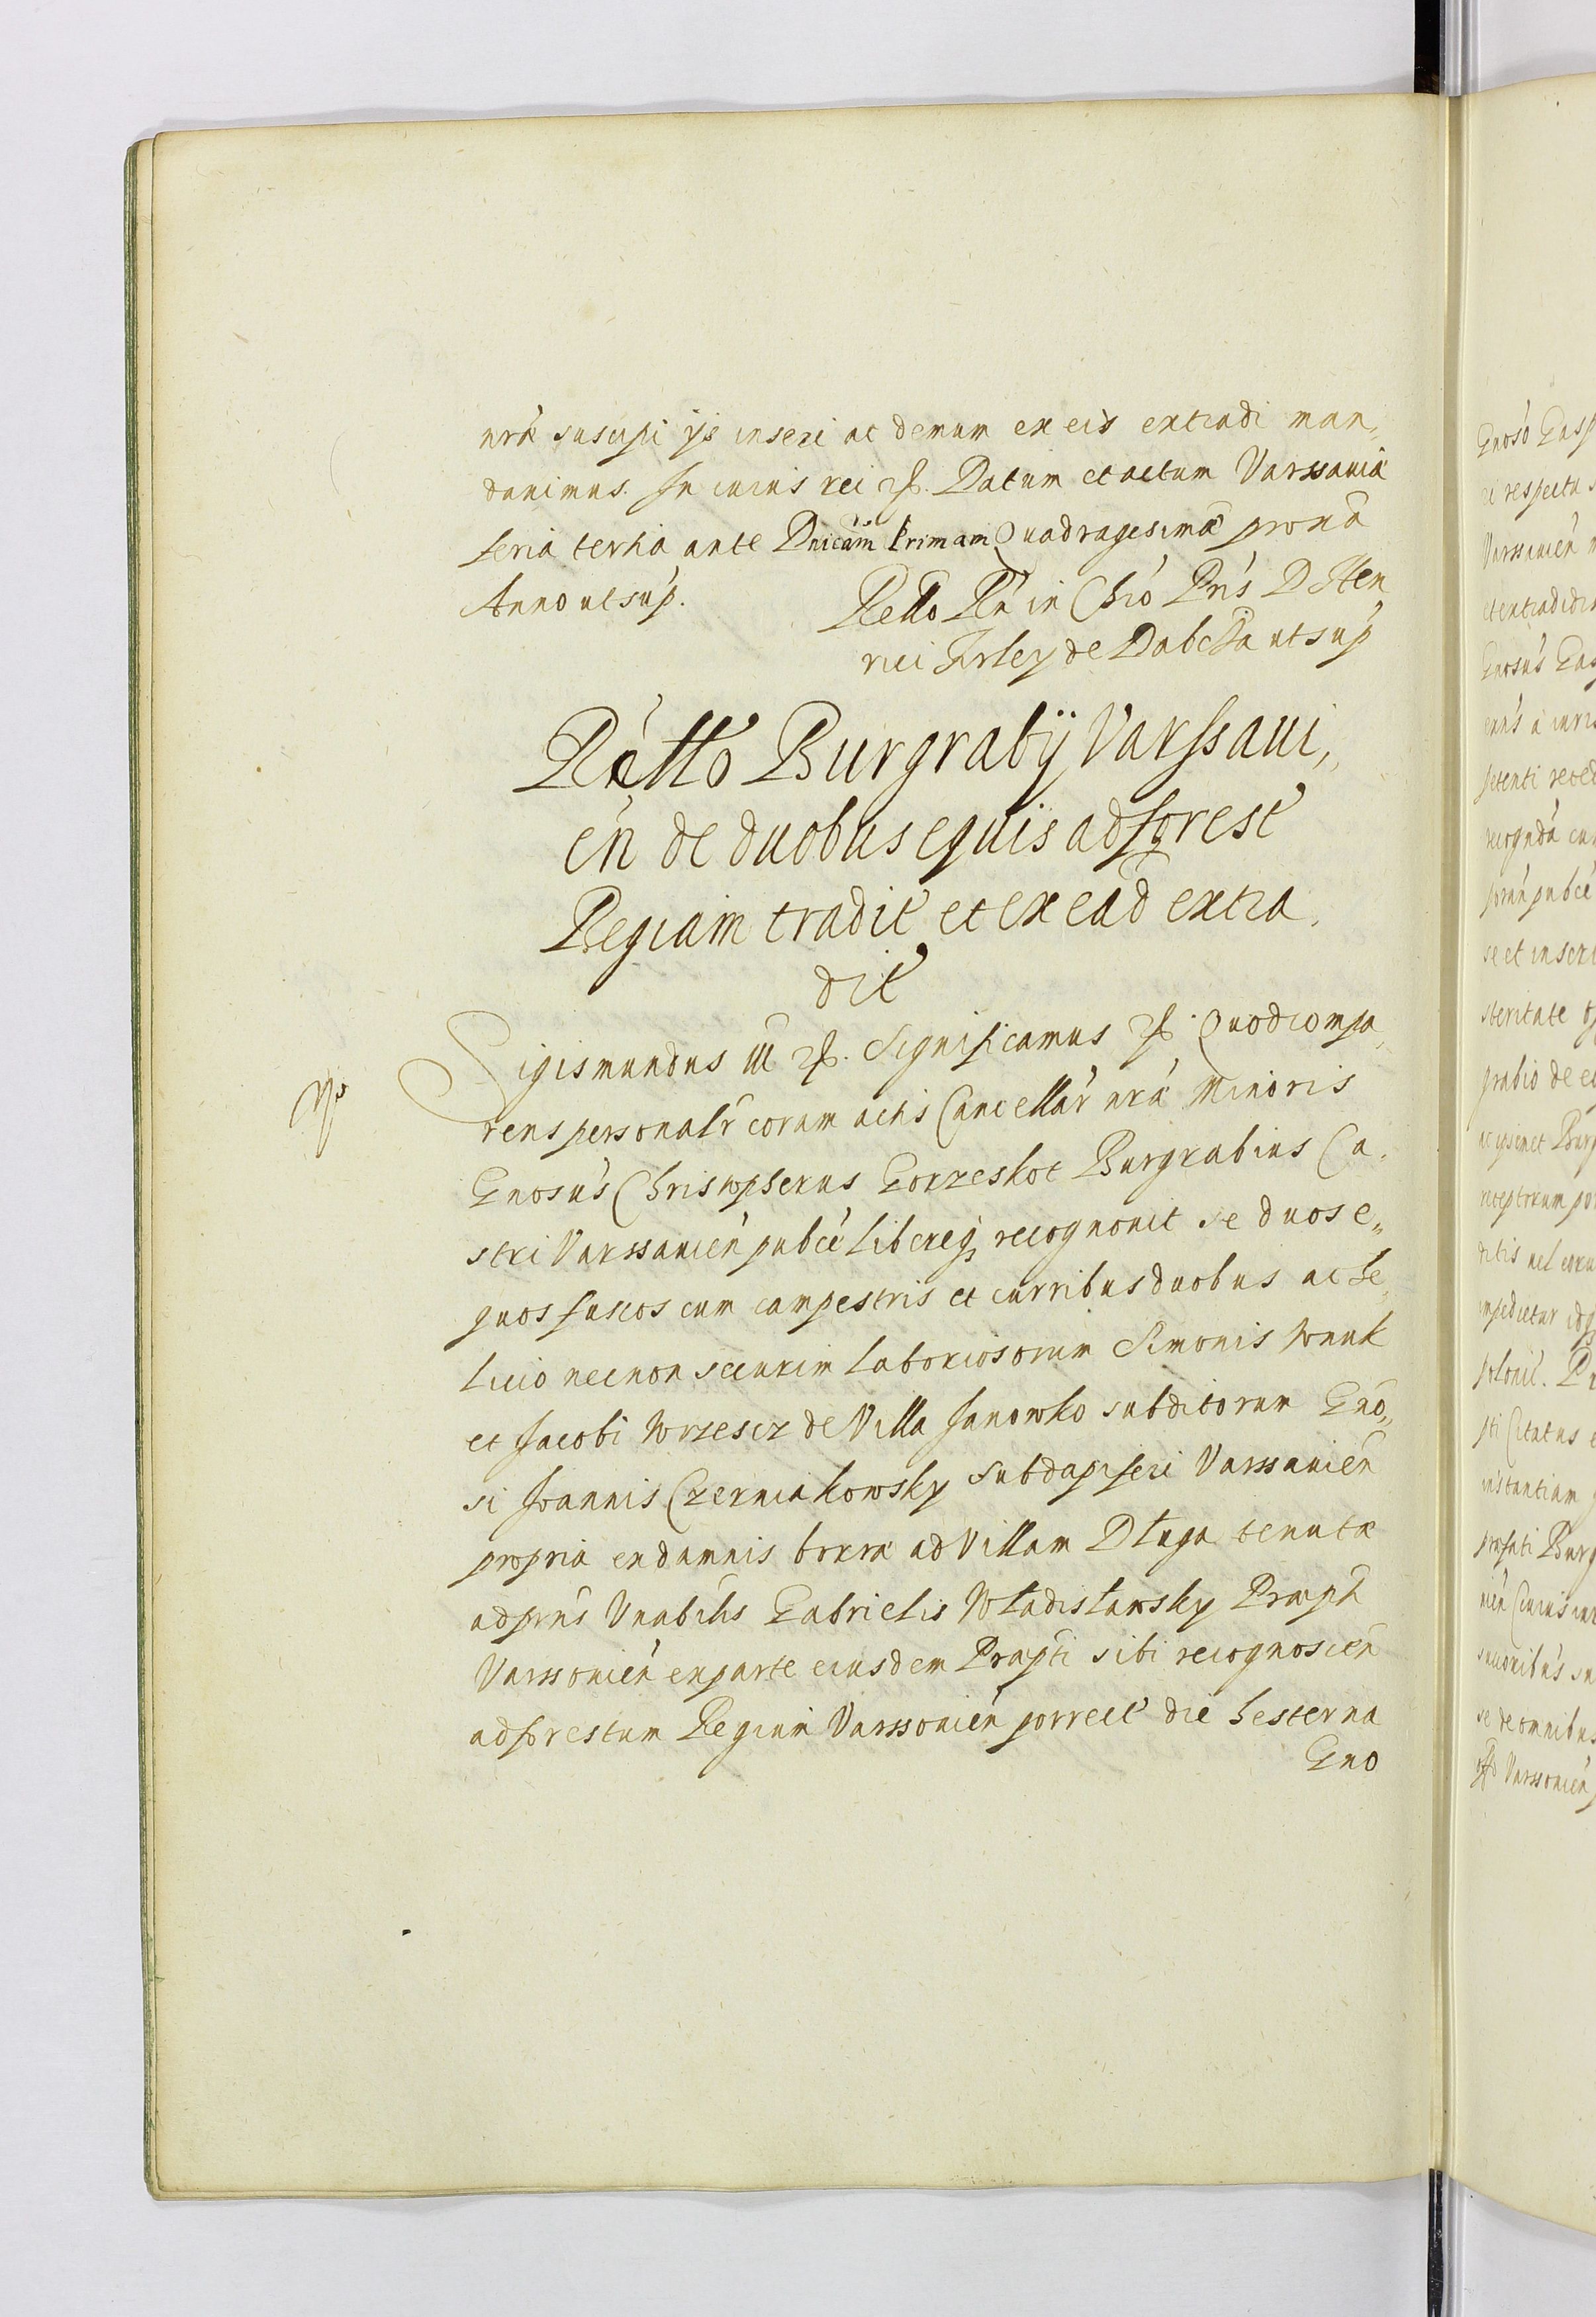 nrã suscipi ijs inseri ac demum ex eis extradi man„
dauimus. In cuius rei &. Datum et actum Varssauiæ
feria tertia ante Dnicam Primam Quadragesimæ proxã
Anno ut sup.
Rello Rñ in Chro Pris D Hen
rici Firley de Dabrowica ut sup
Rctto Burgrabÿ Varssaui„
eñ de duobus equis ad forest
Regiam tradit et ex ead extra„
dit
Sigismundus III &. Significamus & Quod compa„
rens personalr coram actis Cancellar nrã Minoris
Gnosus Christopherus Gorzeskot Burgrabius Ca„
stri Varssauien pubce libereq recognouit se duos e„
quos fuscos cum campestris et curribus duobus ac he„
lcio necnon securim laboriosorum Simonis Wnuk
et Jacobi Wrzescz de Villa Janowko subditorum Gno„
si Joannis Czerniakowsky Subdapiferi Varssauien
propria ex damnis borræ ad Villam Dluga tenutæ
ad pñs Vnabilis Gabrielis Wladislawsky Præpti
Varssouien ex parte eiusdem Præpti sibi recognoscen
ad forestum Regium Varssouien porrect die hesterna
Gno
Gnoso Gasp
ei respectu
Varssauien
et extradidi
Gnosus Gas
petenti
se et inscri
pratio de e
ac ipsimet Burg
impedietur
pti Citatus
instantiam
præfati Burg
se de omnibus
Varssouien